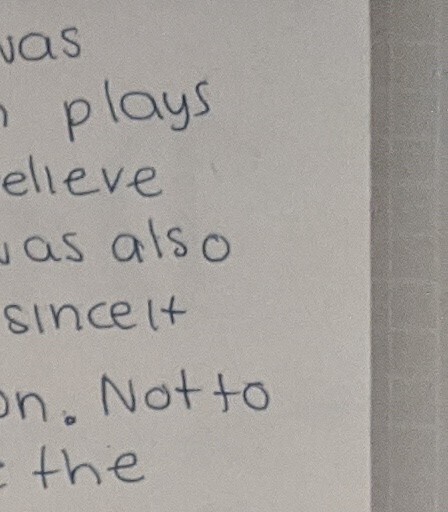 was
plays
elieve
was also
since it
on. Not to
the